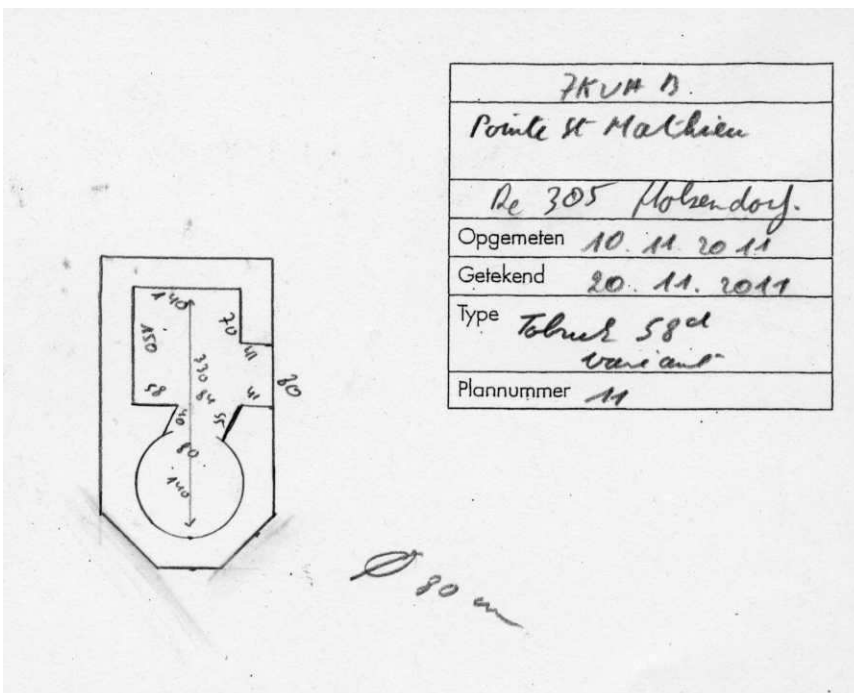 7KVH B
Pointe St Mathieu
Re 305 Holsendorf.
Opgemeten 10. 11. 2011
Getekend 20. 11. 2011
Type Tobruk 58d
variant
Plannummer 11
140
70
150
41
330
80
58
84
41
40
55
80
140
Ø 80 cm